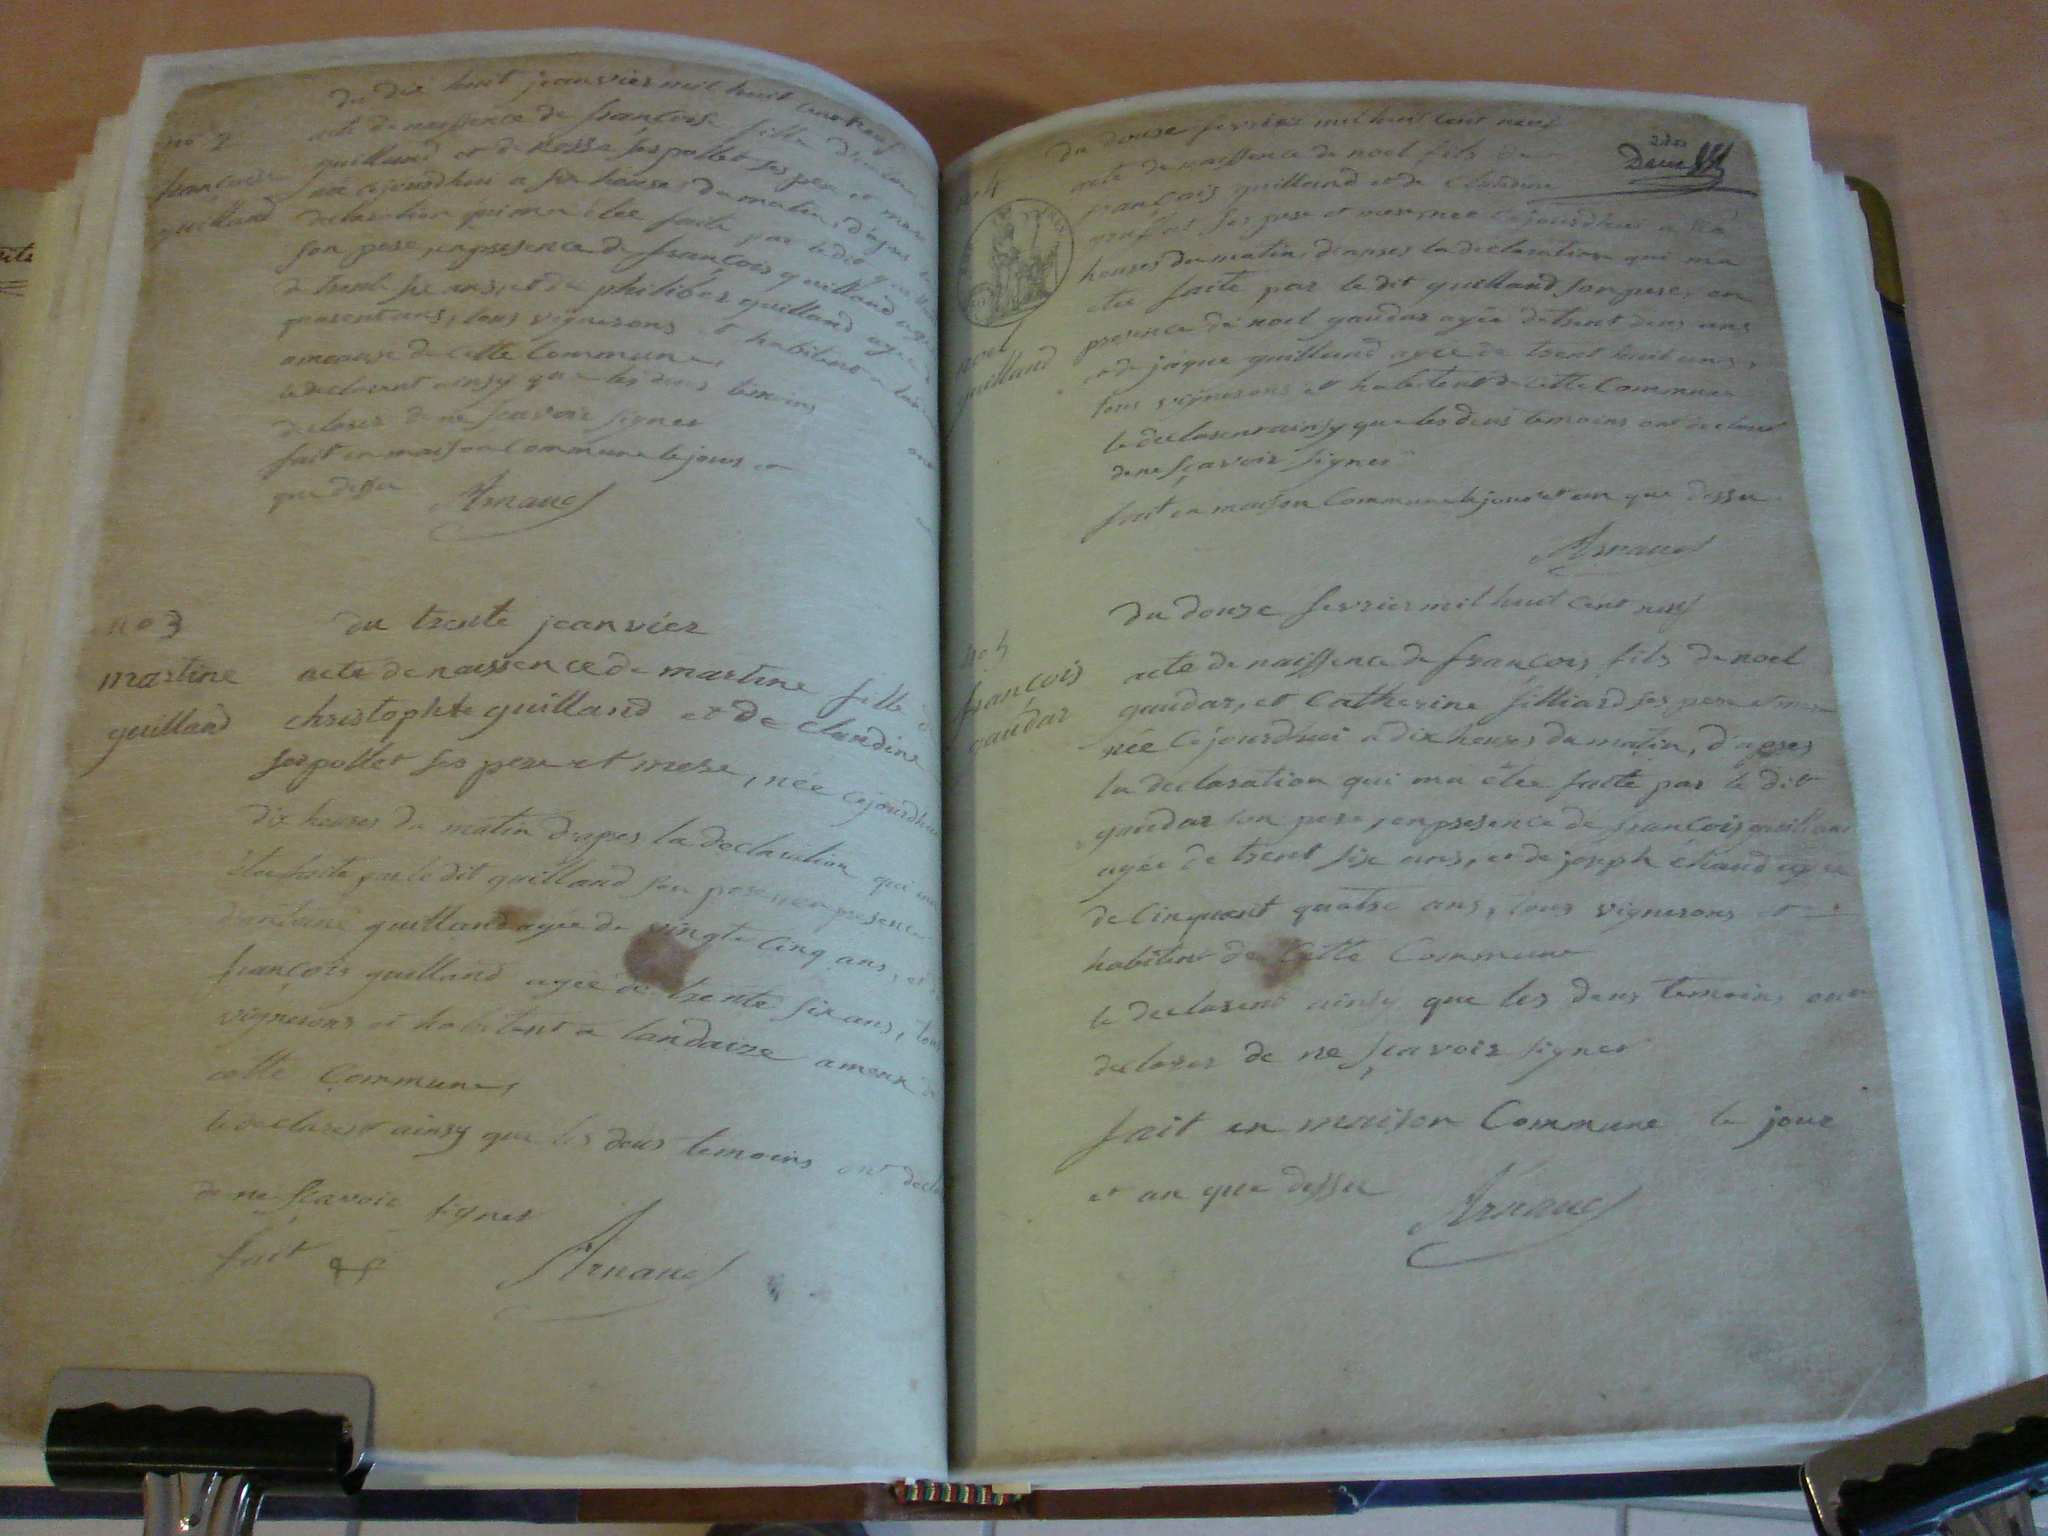 du dix huit jeanvier mil huit cent neuf
no 2
françoise
guilland
acte de naissence de françoise fille d'antoine
guilland et de ses pere et mere
née cejourdhui a six heures du matin, d'apres la
declaration qui ma étée faite par le dit guilland
son pere, en presence de françois guilland agée
de trente six ans, et de philiber guilland agée
quarent ans, tous vignerons et habitent a
ameaux de cette Commune,
le declarent ainsy que les deus temoins
declarer de ne sçavoir signer
fait en maison commune le jour et
que dessu
Arnaud
no 3
martine
guilland
du trente jeanvier
acte de naissence de martine fille d
christophle guilland et de Claudine
serpollet ses pere et mere, née cejourdhui
dix heures du matin drapres la declaration qui ma
étée faite par le dit guilland son pere, en presence
d'antoine guilland agée de vingte cinq ans, et
françois guilland agée de trente six ans, tous
vignerons et habitent a landaize ameau d
cette Commune,
le declarent ainsy que les deus temoins ont decla
de ne sçavoir signer
fait &
Arnaud
deus
du douse fevrier mil huit cent neuf
no 4
noel
guilland
acte de naissence de noel fils de
françois guilland et de Claudine
ses pere et mere, née cejourdhui a
heures du matin, drapres la declaration qui ma
étée faite par le dit guilland son pere, en
presence de noel gaudar agée de trent deus ans
et de jaque guilland agée de trent huit ans,
tous vignerons et habitent de cette Commune
le declarent ainsy que les deus temoins ont declarer
de ne sçavoir signer
fait en maison Commune le jour et an que dessu
Arnaud
du douze fevrier mil huit cent neuf
no 5
françois
gaudar
acte de naissence de françois fils de noel
gaudar, et Catherine filliard ses pere et mere
née cejourdhui a dix heures du matin, d'apres
la declaration qui ma étée faite par le dit
gaudar son pere, en presence de françois guilland
agée de trent six ans, et de joseph chaud agée
de Cinquent quatre ans, tous vignerons et
habitent de Cette Commune
le declarent ainsy que les deus temoins ont
declarer de ne sçavoir signer
fait en maison Commune le jour
et an que dessu
Arnaud